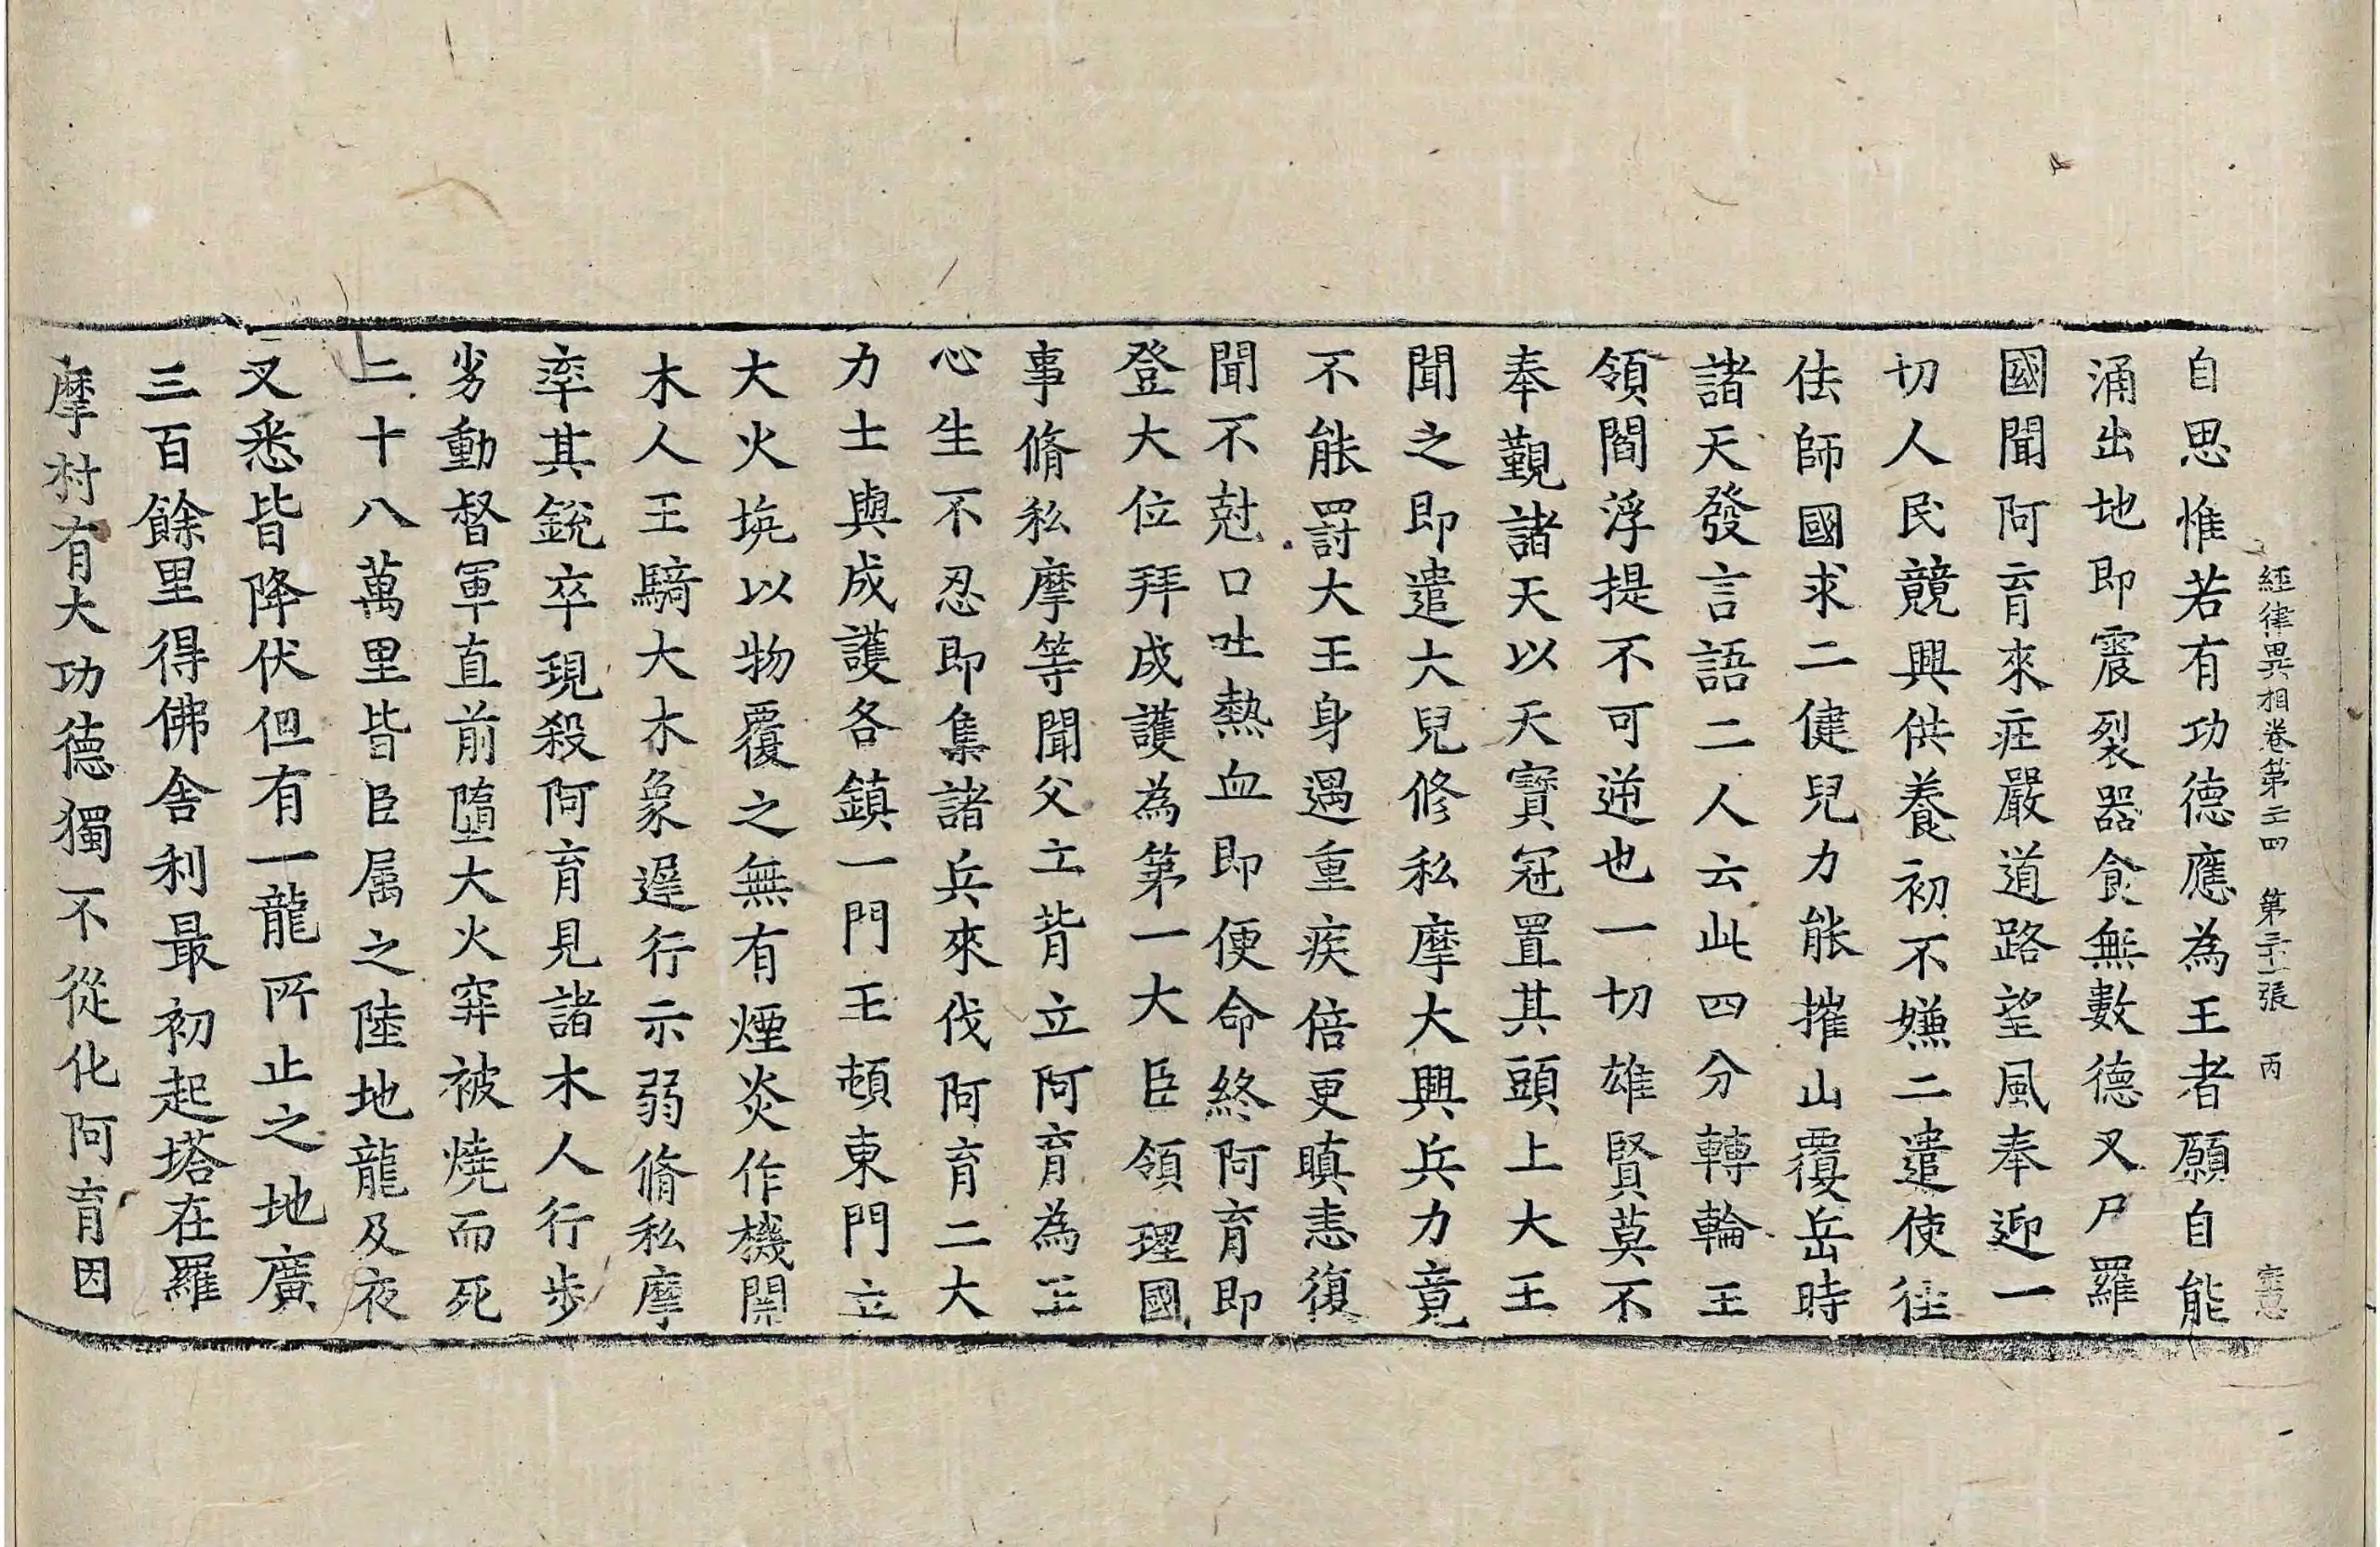 經律異相卷第二四 第二十一張 丙
自思惟若有功德應為王者願自能
涌出地即震裂器食無數德叉尸羅
國聞阿育來疰嚴道路望風奉迎一
切人民競興供養初不嫌二遣使往
佉師國求二健兒力能摧山覆岳時
諸天發言語二人云此四分轉輪王
領閻浮提不可逆也一切雄賢莫不
奉覲諸天以天寶冠置其頭上大王
聞之即遣大兒修私摩大興兵力竟
不能罰大王身遇重疾倍更瞋恚復
聞不尅口吐熱血即便命終阿育即
登大位拜成護為第一大臣領理國
事脩私摩等聞父王背立阿育為王
心生不忍即集諸兵來伐阿育二大
力士與成護各鎮一門王頓東門立
大火坑以物覆之無有煙炎作機關
木人王騎大木象遲行示弱脩私摩
率其銳卒現殺阿育見諸木人行步
劣動督軍直前墮大火穽被燒而死
二十八萬里皆臣属之陸地龍及夜
叉悉皆降伏但有一龍所止之地廣
三百餘里得佛舍利最初起塔在羅
摩村有大功德獨不從化阿育因